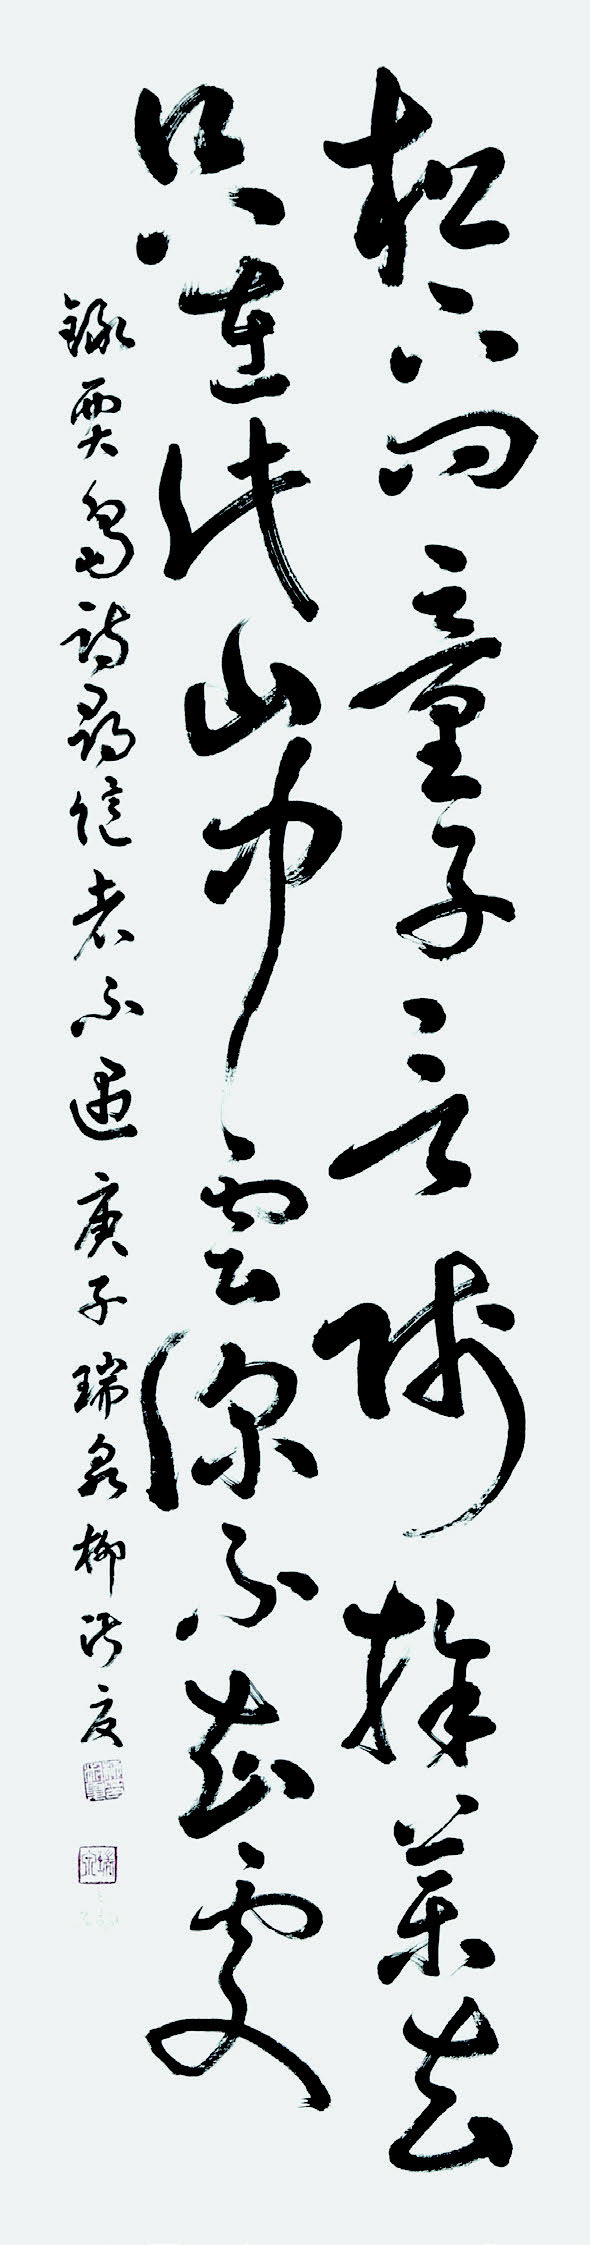 松下問童子言師採藥去
只在此山中雲深不知處
錄賈島詩尋隱者不遇 庚子 瑞泉 柳